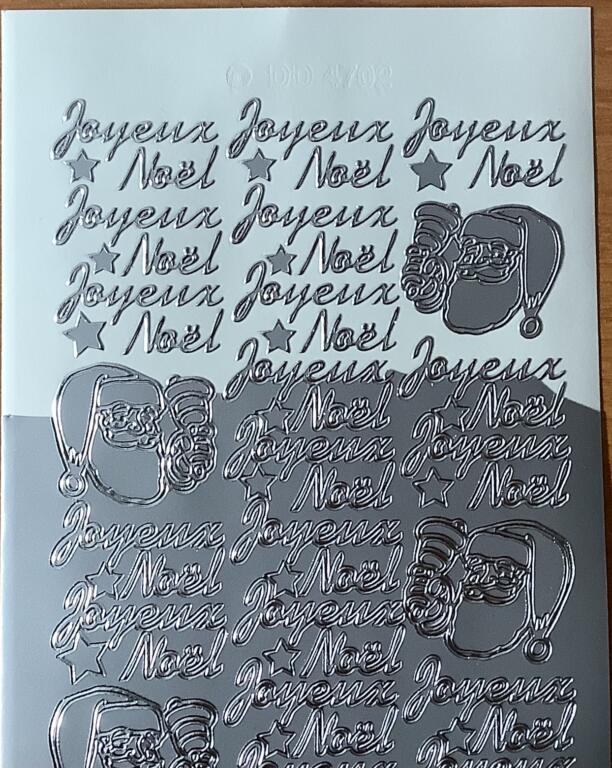 DD 4702
Joyeux Joyeux Joyeux
Noël Noël Noël
Joyeux Joyeux
Noël Noël
Joyeux Joyeux
Noël Noël
Joyeux Joyeux
Noël Noël
Joyeux Joyeux
Noël Noël
Joyeux Joyeux
Noël Noël
Joyeux Joyeux
Noël Noël
Joyeux Joyeux
Noël Noël